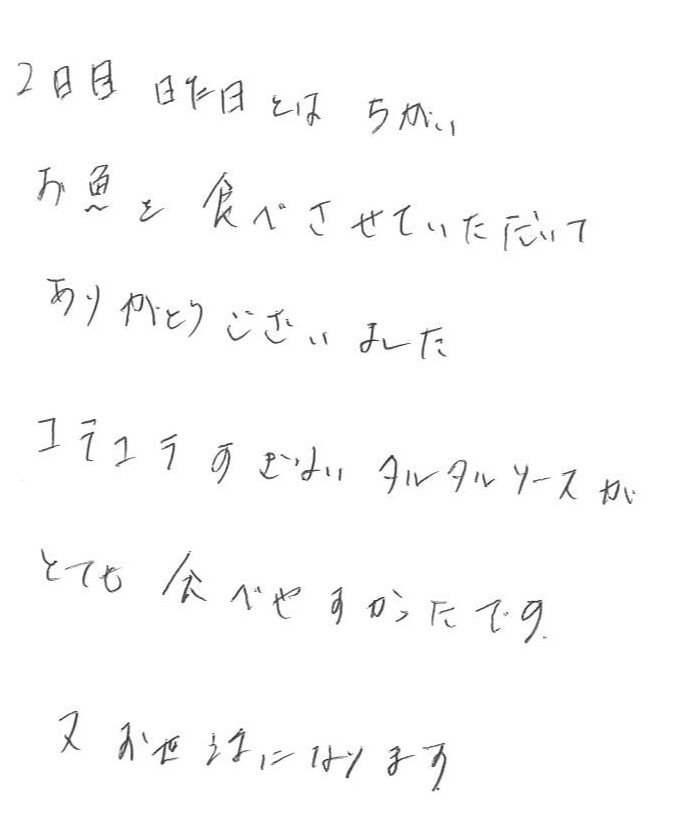 2日目 昨日とは ちがい
お魚を 食べさせていただいて
ありがとうございました
コテコテすぎない タルタルソースが
とても 食べやすかったです。
又 お世話になります